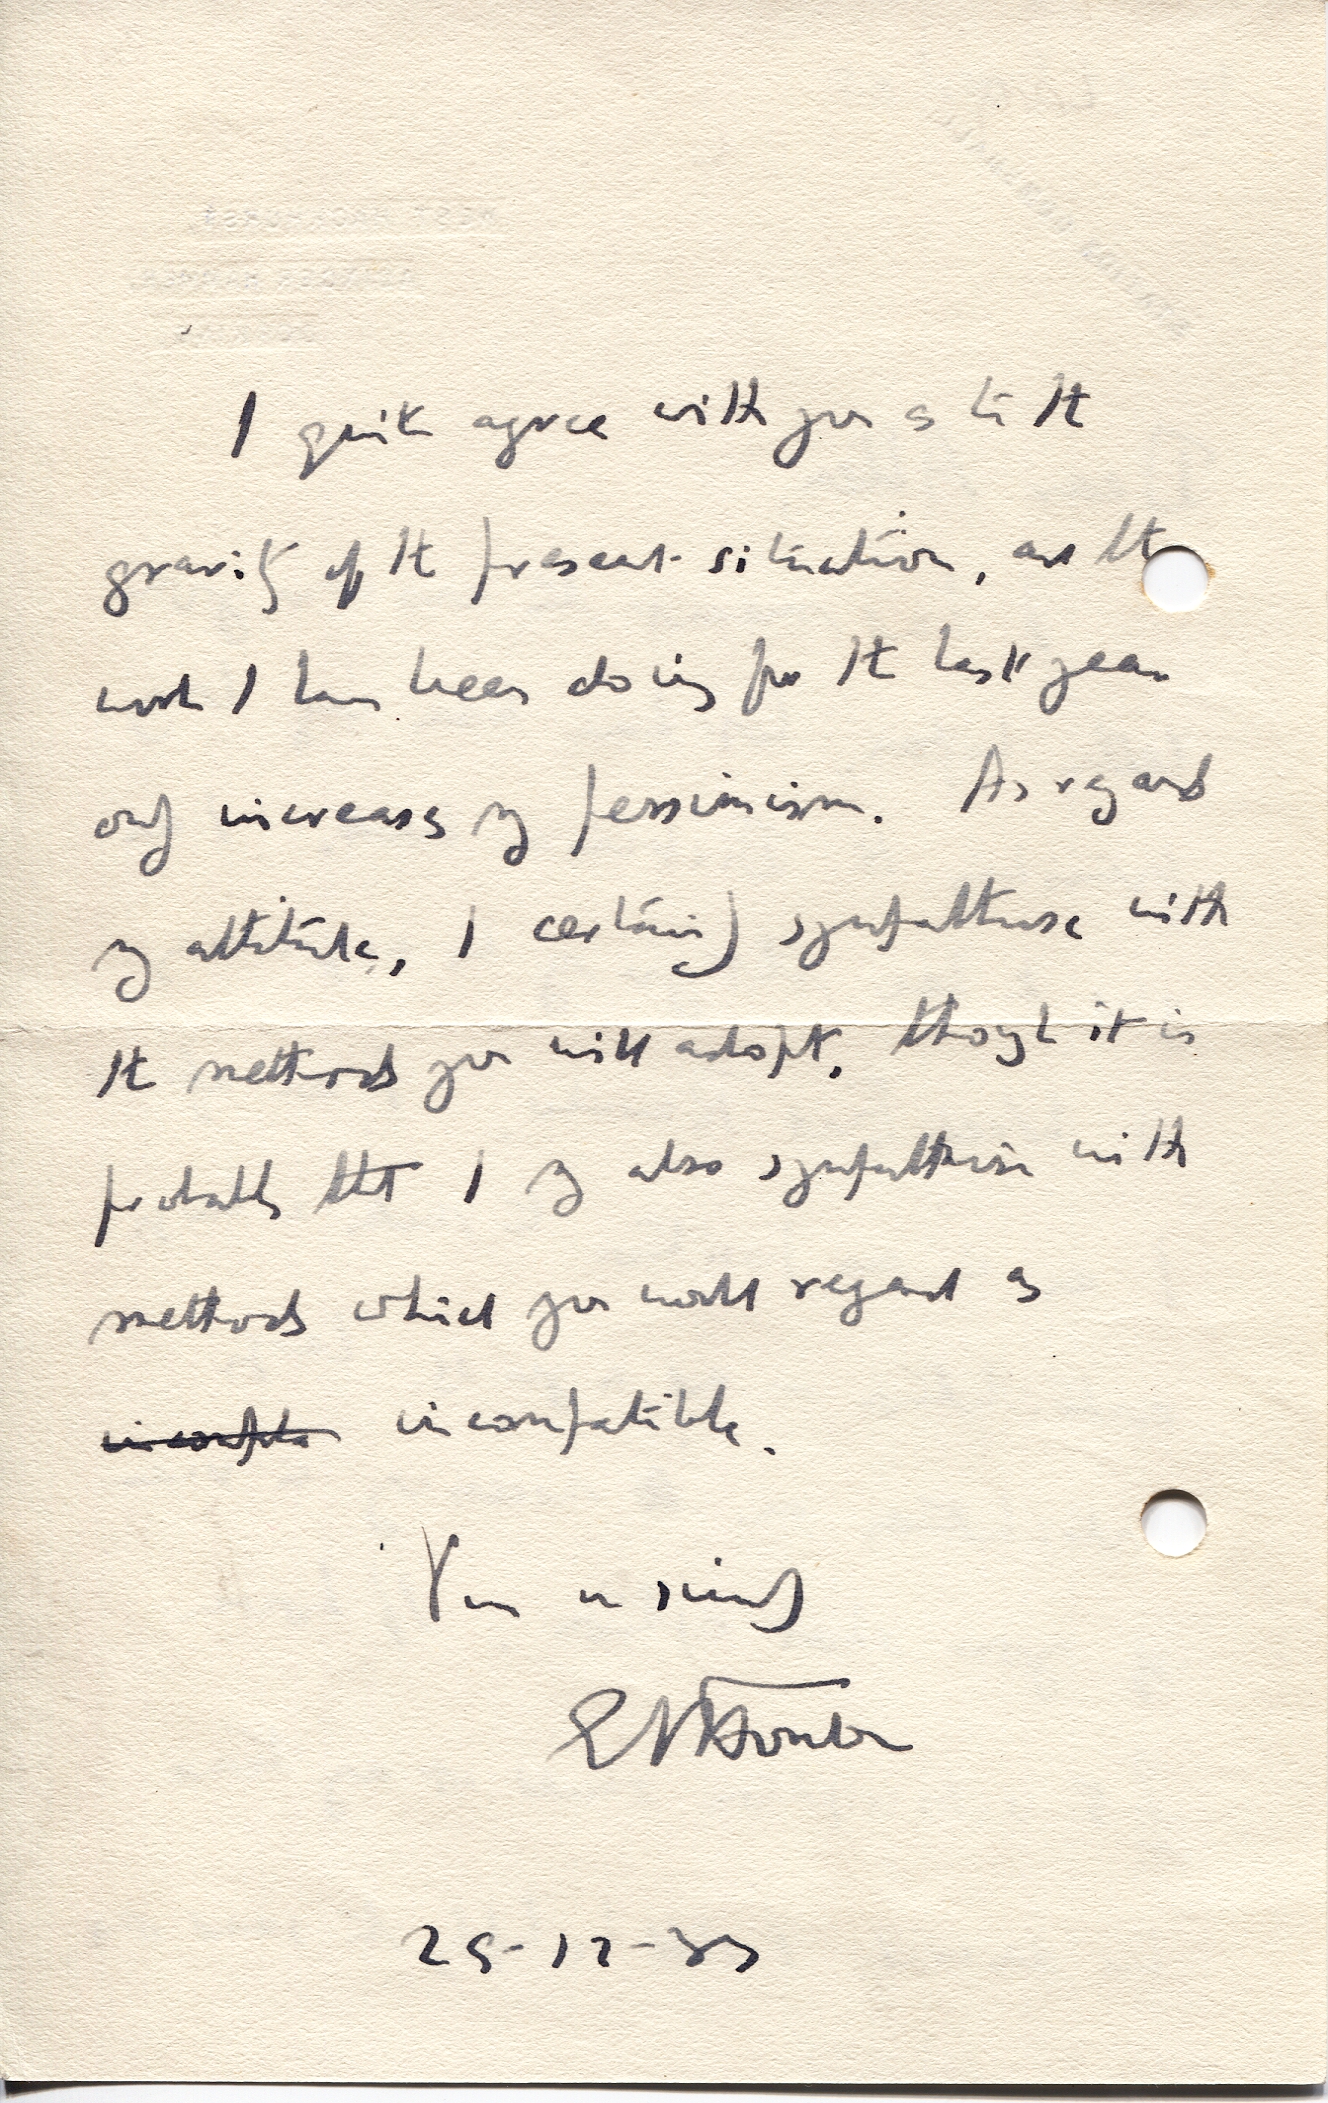 I quite agree with you as to the
gravity of the present situation, and the
work I have been doing for the last year
only increases my pessimism. As regards
my attitude, I certainly sympathise with
the methods you will adopt, though it is
probable that I may also sympathise with
methods which you would regard as
incompatible.
Yours sincerely
EM Forster